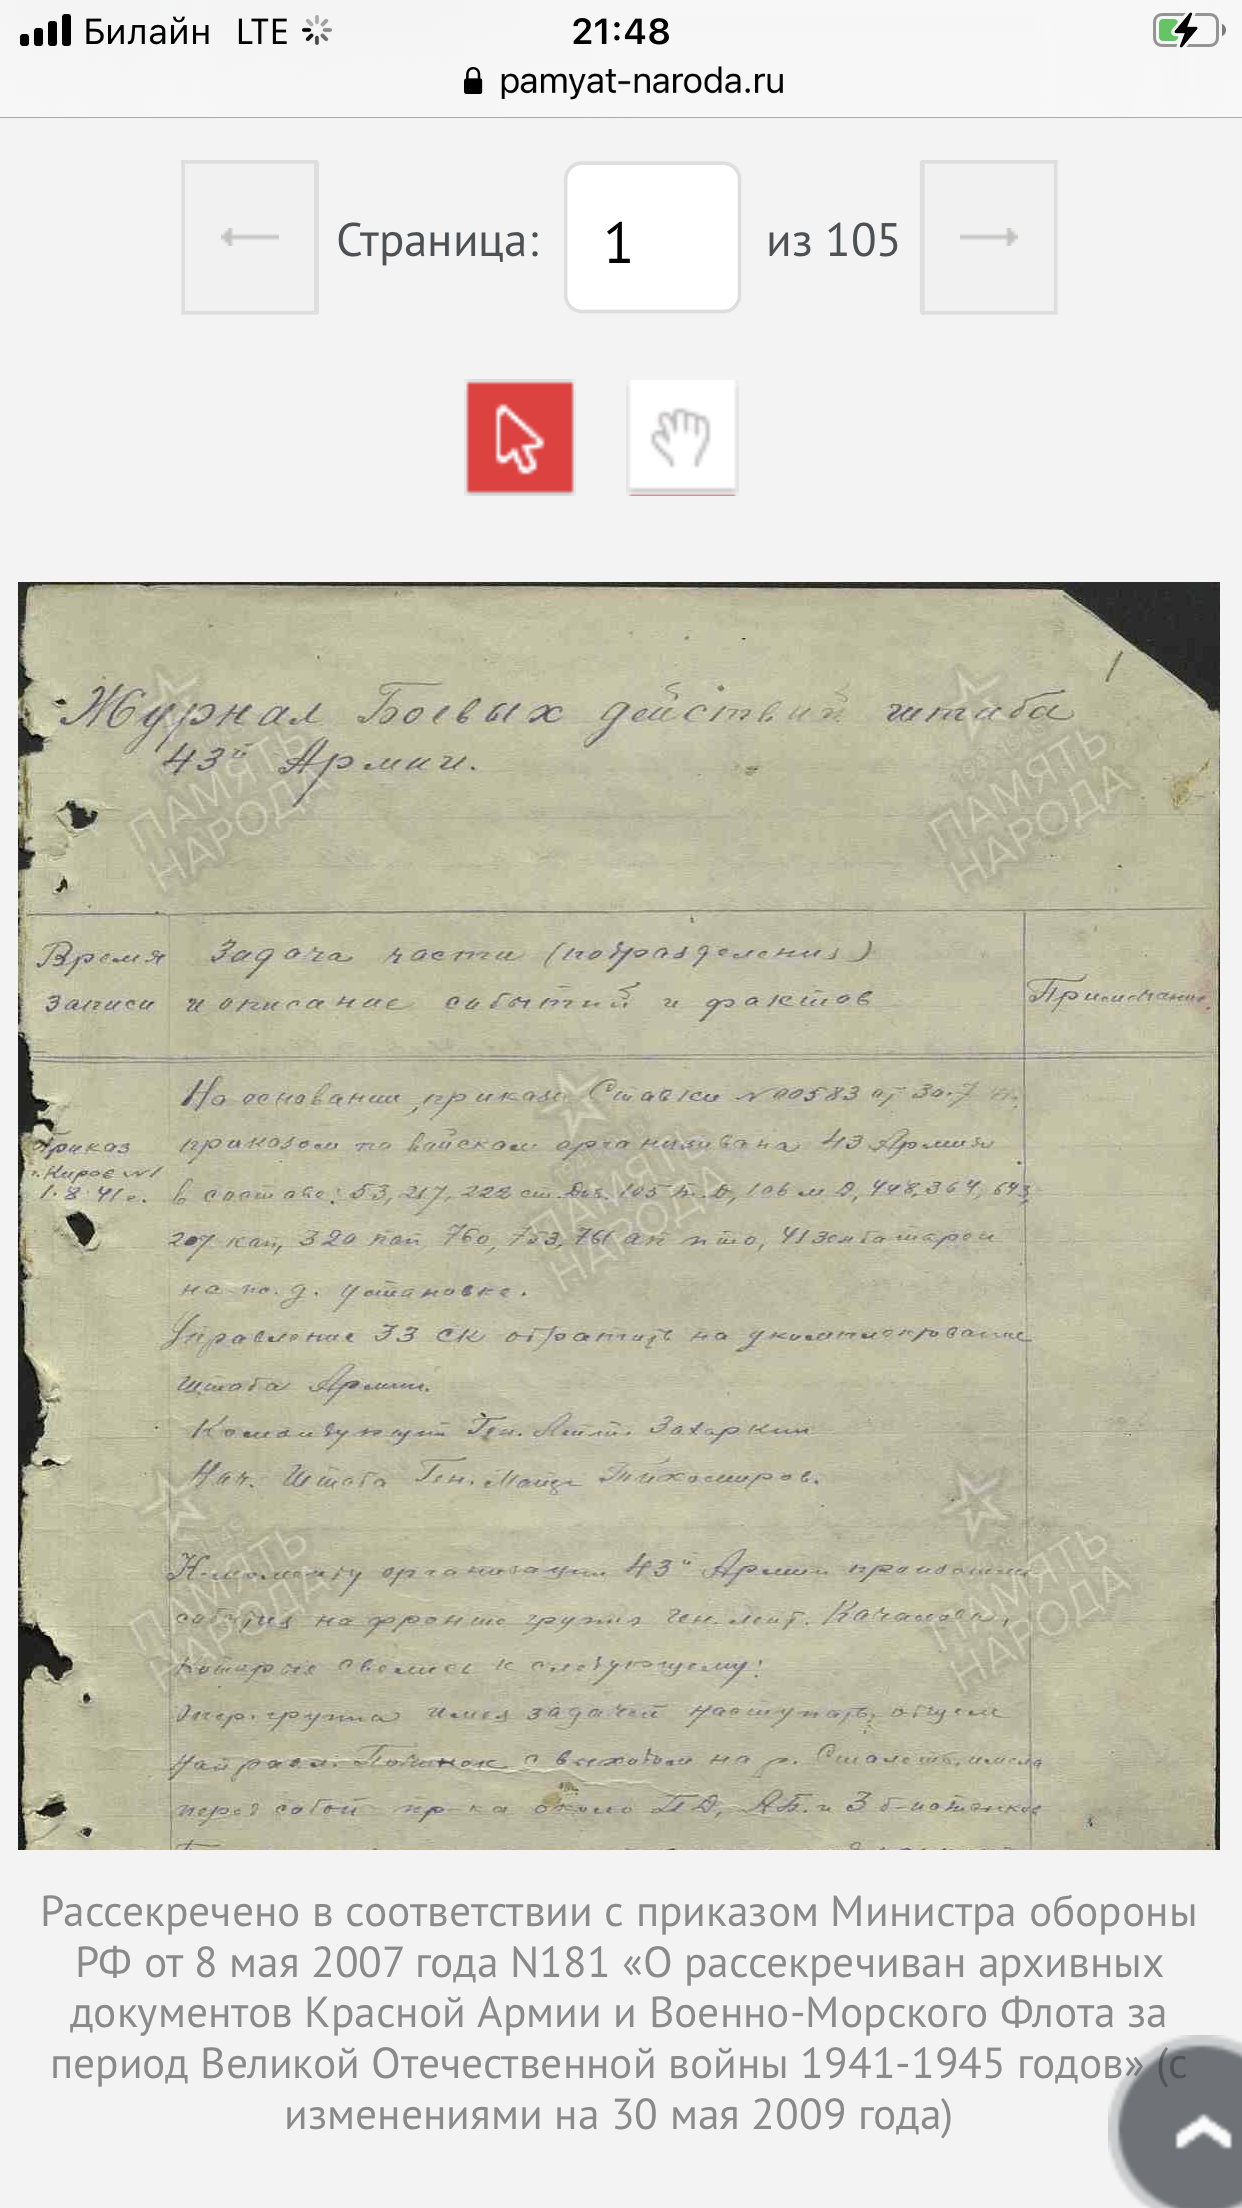 Билайн LTE 21:48
pamyat-naroda.ru
Страница: 1 из 105
1
Журнал Боевых действий штаба
43й Армии.
Время записи
Задача части (подразделения)
и описание событий и фактов
Примечание.
Приказ
г. Киров №1
1.8.41 г.
На основании приказа Ставки №00583 от 30.7
приказом по войскам организована 43 Армия
в составе: 53, 217, 222 сд. 105 т. д, 106 м д, 448, 364, 643,
207 кап, 320 пап 760, 753, 761 ап пто, 41 зенбатареи
на ж. д. установке.
Управление 33 СК обратить на укомплектование
штаба Армии.
Командующий Ген. Лейт. Захаркин
Нач. Штаба Ген. Майор Тихомиров.
К моменту организации 43й Армии произошли
события на фронте группы ген. лейт. Качалова,
Которые свелись к следующему:
Опер. группа имея задачей наступать в общем
направл. Починок с выходом на р. имела
перед собой пр-ка около ПД, АБ. и 3 б-на танков
ПАМЯТЬ НАРОДА
ПАМЯТЬ НАРОДА
ПАМЯТЬ НАРОДА
ПАМЯТЬ НАРОДА
ПАМЯТЬ НАРОДА
Рассекречено в соответствии с приказом Министра обороны
РФ от 8 мая 2007 года N181 «О рассекречиван архивных
документов Красной Армии и Военно-Морского Флота за
период Великой Отечественной войны 1941-1945 годов» (с
изменениями на 30 мая 2009 года)